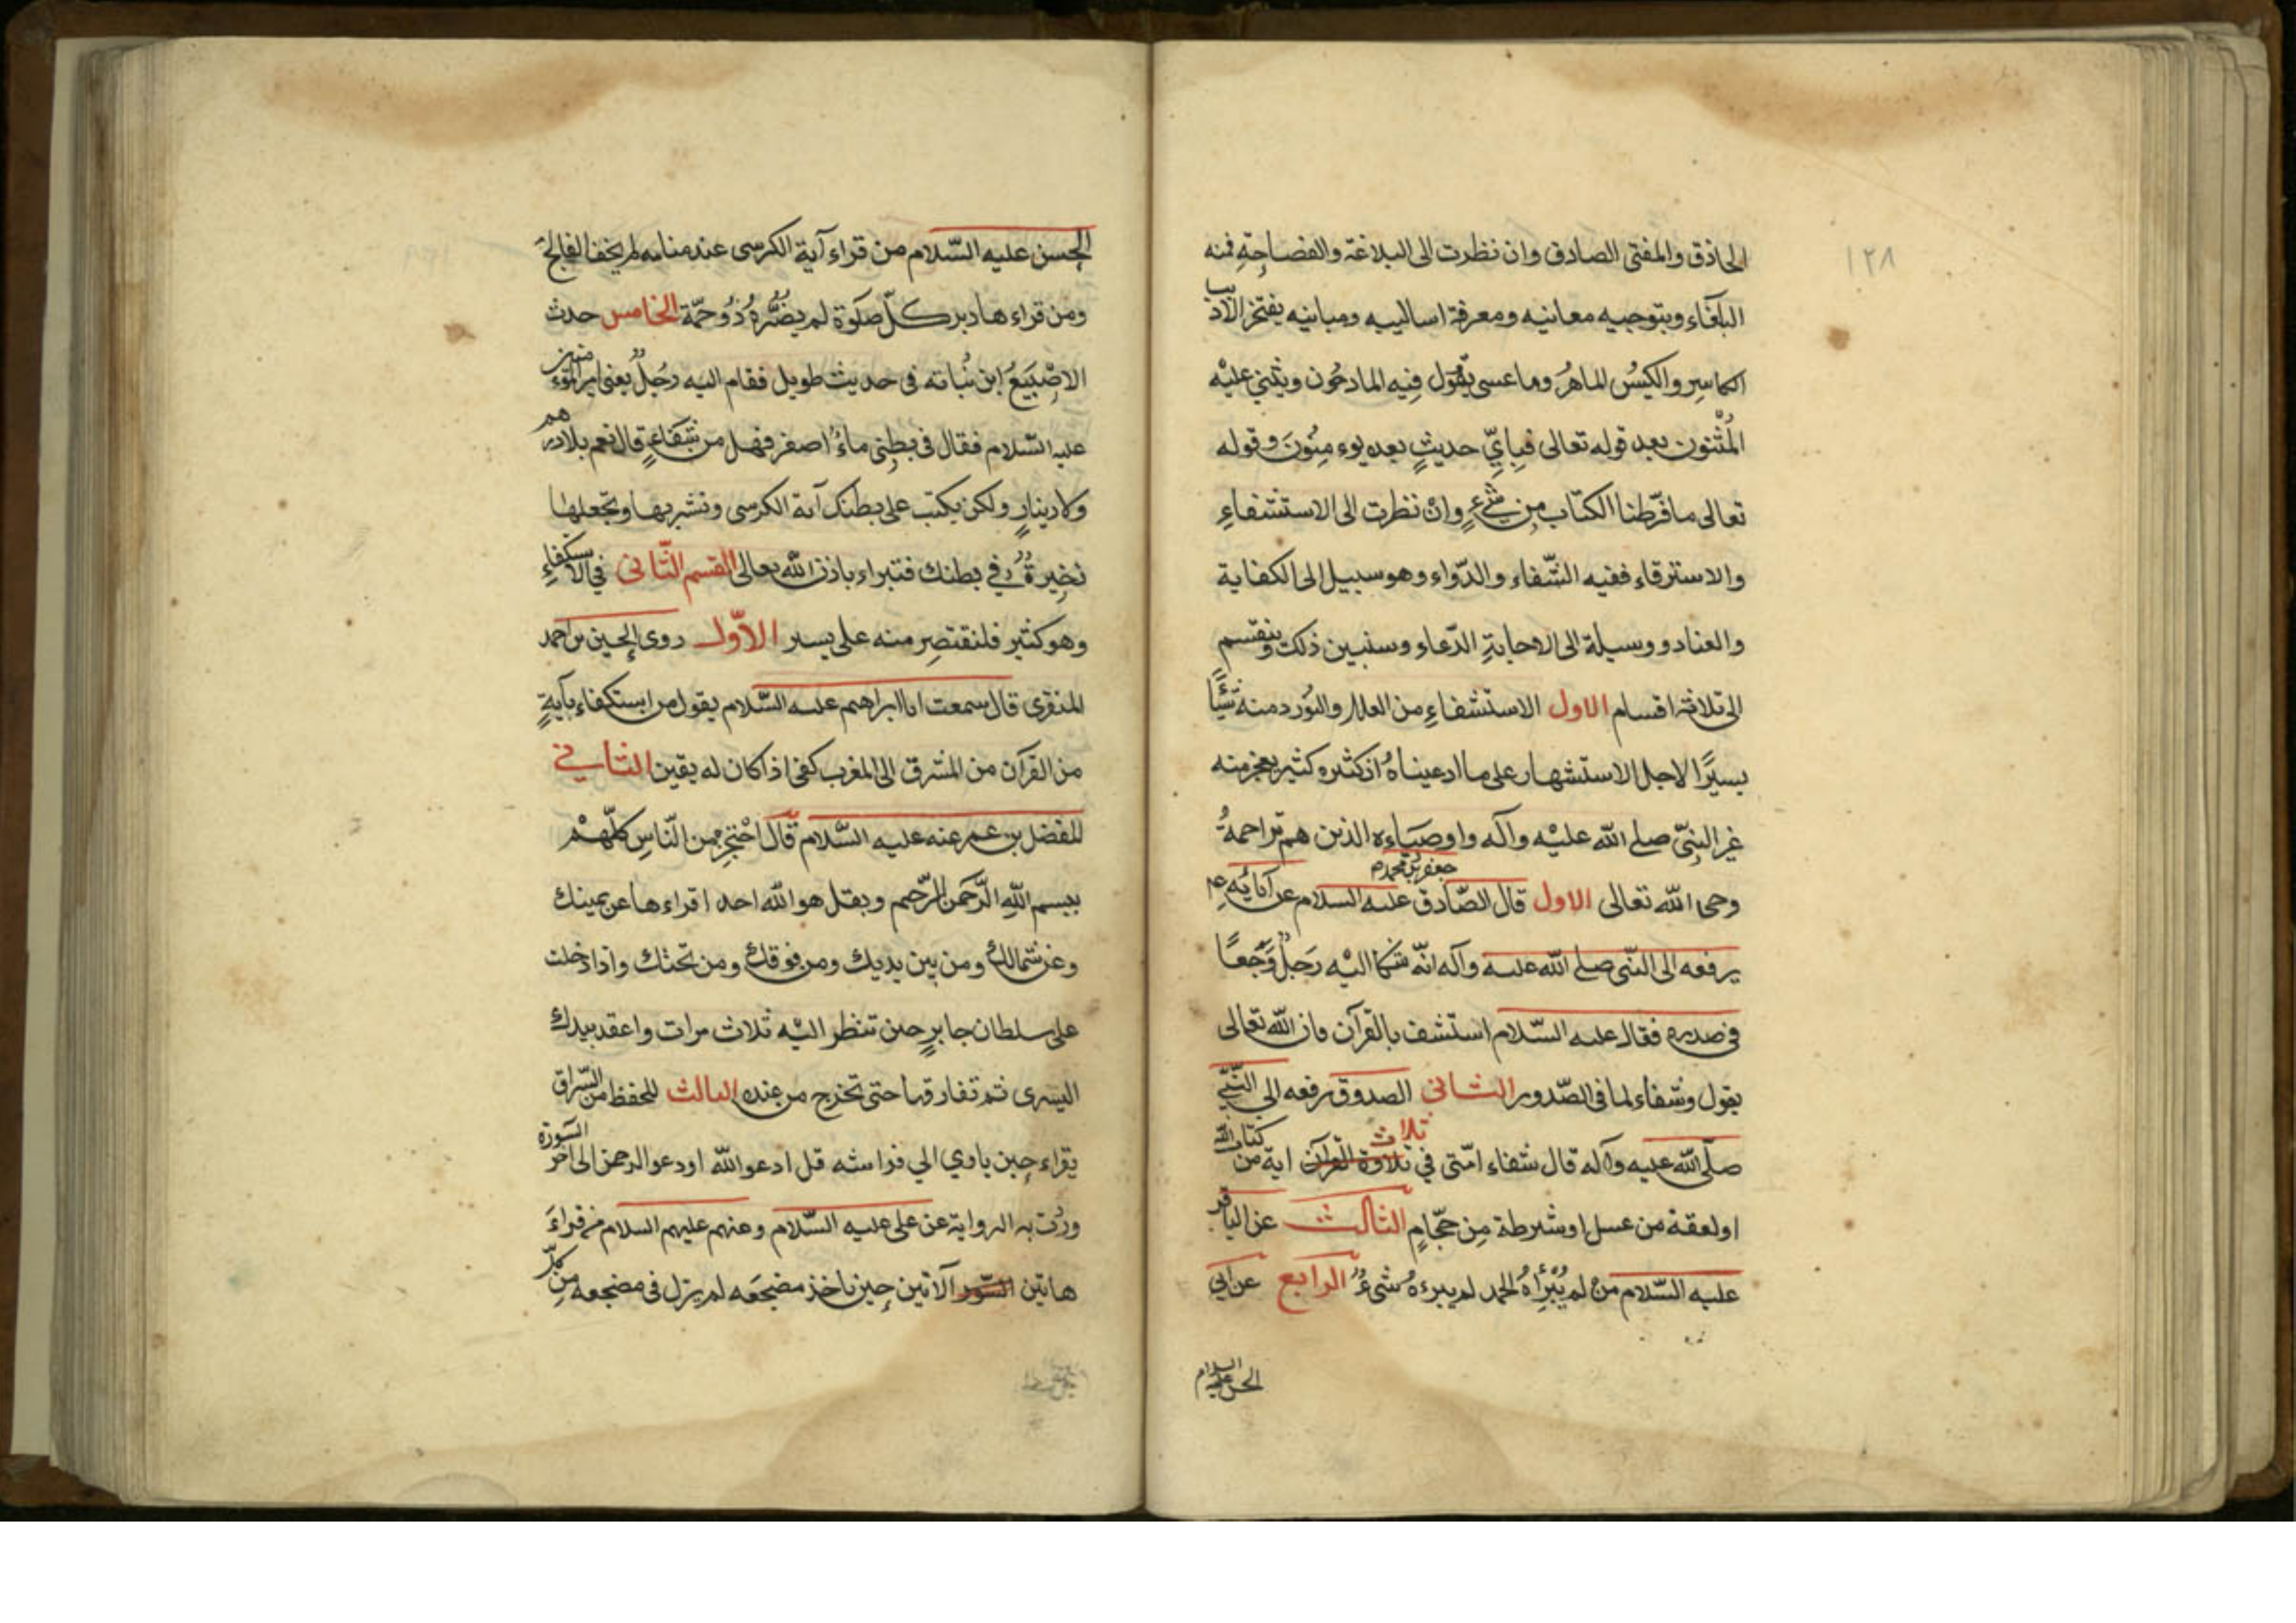 ١٢٨
الحاذق والمفتى الصادق وان نظرت الى البلاغة والفصاحة فمنه
البلغاء وبتوجيه معانيه ومعرفة اساليبه ومبانيه يفتخر الاديب
الماهر وما عسى يقول فيه المادحون ويثني عليْه
المُثْنون بعد قوله تعالى فبِايِّ حديثٍ بعده يوءمِنُونَ وقوله
تعالى ما فرّطنا الكتاب مِن شَيْءٍ وانْ نظرت الى الاستشفاءِ
والاسترقاء ففيه الشّفاء والدّواء وهو سبيل الى الكفاية
والعناد ووسيلة الى الاحابةِ الدّعاء وسنبين ذلك وينقسم
الى ثلاثة اقسام الاول الاستشفاءِ من العلل والنورد منه شيًّا
يسيرًا لاجل الاستشهار على ما ادعيناهُ اذ كثره كثير يعجز منه
غير النبيّ صلى الله عليْه وآله واوصيَاءه الذين هم تراجمةُ
وحى الله تعالى الاول قال الصّادق جعفر بن محمد عليه السلام عن آبائِه ع
يرفعه الى النّبى صلى الله عليه وآله انّه شكا اليْه رَجلٌ وَجَعًا
فى صدره فقال عليه السّلام استشف بالقرآن فان الله تعالى
يقول وشفاء لما فى الصّدور الثانى الصدوق يرفعه الى النَّبيّ
صلّى الله عليه وآله قال شفاء امّتى فى ثلاث تلاوة القرآن اية من كتاب الله
او لعقة من عسل او شرطة مِن حجّامٍ الثالث عن الباقر
عليه السّلام منْ لم يُبْرِأهُ الحمد لم يبرءهُ شىءٌ الرابع عن ابي
الحسن عليه السلام
الحِسن عليه السّلام من قراء آية الكرسى عند منامه لم يخف الفالجَ
ومن قراءها دبر كلّ صلَوة لم يضُّرهُ ذُوحمّة الخامس حدث
الاصْبَغُ ابن نُباته فى حديث طويل فقام اليه رجُلٌ يعنى امير المؤمنين
عليه السّلام فقال فى بطِنى ماءٌ اصفر فهل من شفاءٍ قال نعم بلا درهم
ولا دينارٍ ولكن يكتب على بطنك آية الكرسى وتشربها وتجعلها
ذخِيرةً فى بطنك فتبراء باذن الله تعالى القسم الثّانى في الاستكفاءِ
وهو كثير فلنقتصِر منه على يسير الاوّل روى الحِسين بن احمد
المنقرى قال سمعت ابا ابراهيم عليه السّلام يقول من استكفاء بآيةٍ
من القرآن من المشرق الى المغرب كفى اذا كان له يقين الثاني
المفضل بن عمر عنه عليه السّلام قَال احْتجِز من النّاسِ كلّهمْ
ببسم اللهِ الرَّحمَن الرّحيم وبقل هو الله احد اقراءها عن يمينك
وعن شمالك ومن بين يديك ومن فوقك ومن تحتك واذا دخلت
على سلطان جابرٍ حين تنظر اليْه ثلاث مرات واعقد بيدك
اليسرى ثم تفارقها حتى تخرج من عنده الثالث للحفظ من السّراق
يقراء حِين ياوي الي فراشه قل ادعوا الله او دعوا الرحمن الى اخر السّورة
وردت به الرواية عن على عليه السّلام وعنهم عليهم السلام من قراءَ
هاتين السّور الآتين حِين ياخذ مضجعَه لم يزل فى مضجعه مِن كلِّ